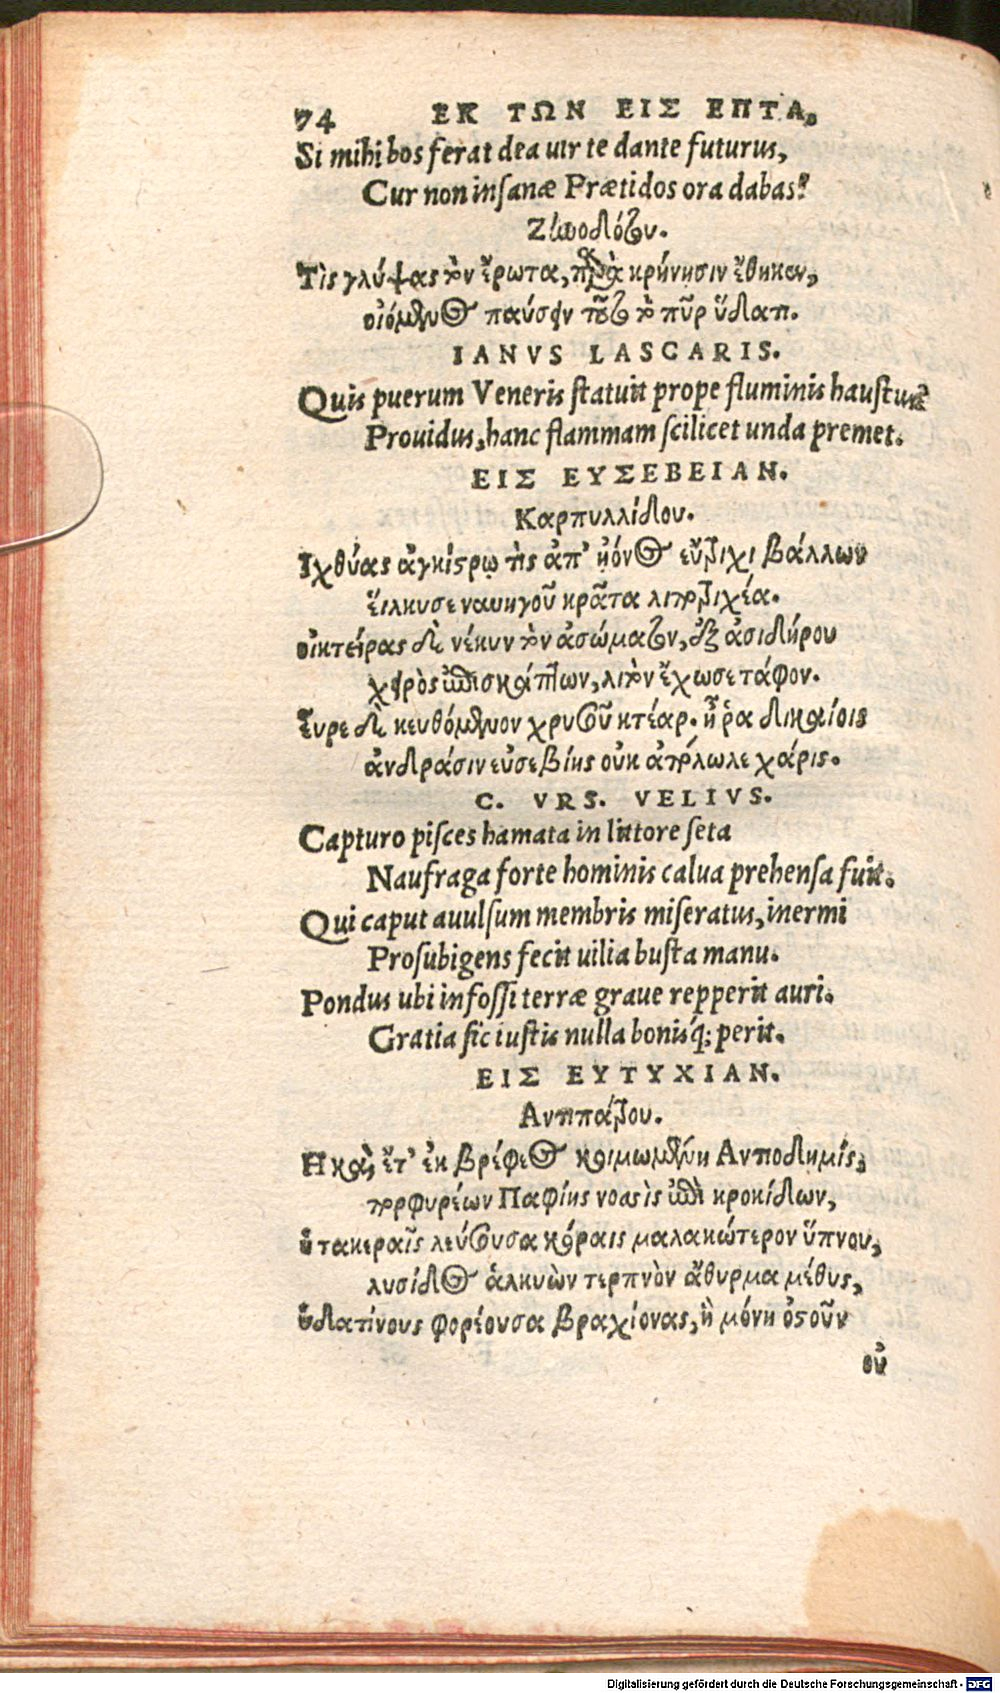 74 ΕΚ ΤΩΝ ΕΙΣ ΕΠΤΑ.
Si mihi bos ferat dea uir te dante futurus,
Cur non insanæ Prætidos ora dabas?
Ζίωοδότου.
Τὶς γλύψας τὸν ἔρωτα, παρὰ κρήνησιν ἔθηκεν,
οἰόμενος παύσειν τοῦτο τὸ πῦρ ὕδατι.
IANVS LASCARIS.
Quis puerum Veneris statuit prope fluminis haustus?
Prouidus, hanc flammam scilicet unda premet.
ΕΙΣ ΕΥΣΕΒΕΙΑΝ.
Καρπυλλίδου.
Ἰχθύας ἀγκίστρῳ τὶς ἀπ’ ἠϊόνος εὔτριχι βάλλων
εἵλκυσε ναυηγοῦ κρᾶτα λιποτριχέα.
οἰκτείρας δὲ νέκυν τὸν ἀσώματον, ἐξ ἀσιδήρου
χειρὸς ἐπισκάπτων, λιτὸν ἔχωσε τάφον.
Εὗρε δὲ κευθόμενον χρυσοῦ κτέαρ. ἦ ῥα δικαίοις
ἀνδράσιν εὐσεβίης οὐκ ἀπόλωλε χάρις.
C. VRS. VELIVS.
Capturo pisces hamata in littore seta
Naufraga forte hominis calua prehensa fuit.
Qui caput auulsum membris miseratus, inermi
Prosubigens fecit uilia busta manu.
Pondus ubi infossi terræ graue repperit auri.
Gratia sic iustis nulla bonisq́; perit.
ΕΙΣ ΕΥΤΥΧΙΑΝ.
Αντιπάτρου.
Η καὶ ἔτ’ ἐκ βρέφεος κοιμωμένη Αντιοδημίς,
πορφυρέων Παφίης νοσὶς ἐπὶ κροκίδων,
ἡ τακεραῖς λεύσουσα κόραις μαλακώτερον ὕπνου,
λυσίδος ἀλκυὼν τερπνὸν ἄθυρμα μέθυς,
ὑδατίνους φορέουσα βραχίονας, ἣ μόνη ὀστοῦν
οὐ